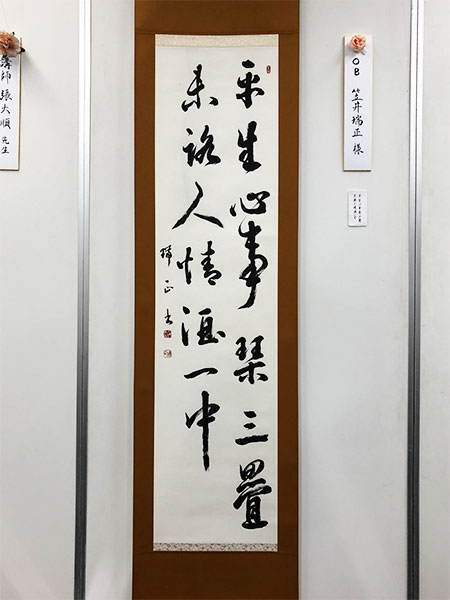 OB 笠井瑞正 様
平生心事琴三疊
末路人情酒一中
瑞正書
講師 張大順 先生